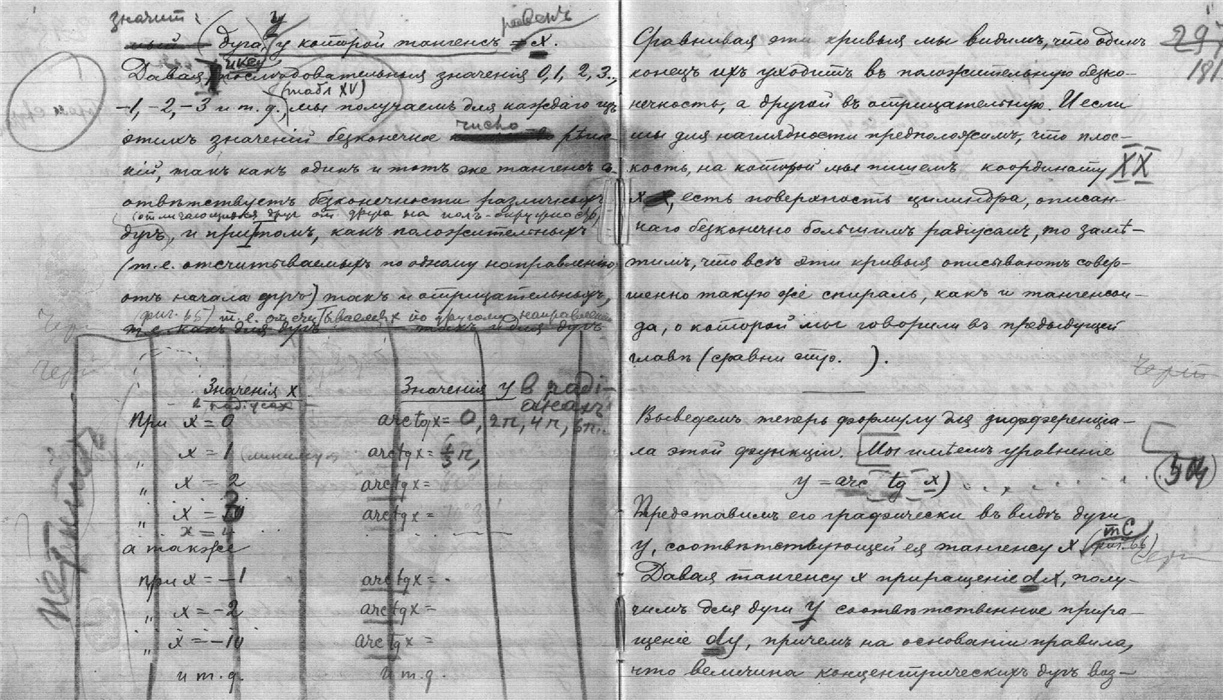 значит:
дуга, у которой тангенсъ равенъ X.
Давая иксу последовательныя значенія 0, 1, 2, 3..,
(табл XV)
-1, -2, -3 и т. д. мы получаемъ для каждаго изъ
этихъ значеній безконечное число
ній, такъ какъ одинъ и тотъ же тангенсъ
отвѣтствуетъ безконечности различныхъ
(отличающихся другъ отъ друга на полъ-окружности)
дугъ, и притомъ, какъ положительныхъ
(т. е. отсчитываемыхъ по одному направленію
отъ начала дугъ) такъ и отрицательныхъ,
(фиг. 66) т. е. отсчитываемыхъ по другому направленію
Черт
Черт
Значенія X
в радіусахъ
Значенія У в радіанахъ
При x = 0 arctgx = 0, 2π, 4π, 6π..
„ x = 1 arctgx = π,
„ x = 2 arctgx =
„ x = 3 arctgx =
x = 4
а также
при x = -1 arctgx = .
„ x = -2 arctgx =
„ x = -10 arctgx =
и т. д. и т. д.
297
181
Сравнивая эти кривыя мы видимъ, что одинъ
конецъ ихъ уходитъ въ положительную безко-
нечность, а другой въ отрицательную. И если
мы для наглядности предположимъ, что плос-
кость, на которой мы пишемъ координату XX
есть поверхность цилиндра, описан-
наго безконечно большимъ радіусомъ, то замѣ-
тимъ, что всѣ эти кривыя описываютъ совер-
шенно такую же спираль, какъ и тангенсои-
да, о которой мы говорили въ предыдущей
главѣ (сравни стр. ).
Черт
Выведемъ теперь формулу для дифференціа-
ла этой функціи. Мы имѣемъ уравненіе
y = arc (tg x) . . . . . . . (504)
Представимъ его графически въ видѣ дуги
y, соотвѣтствующей ея тангенсу X (фиг. 66)
mC
Черт
Давая тангенсу x приращеніе dx, полу-
чимъ для дуги y соотвѣтственное прира-
щеніе dy, причемъ на основаніи правила,
что величина концентрическихъ дугъ воз-